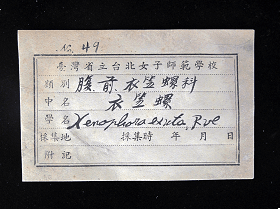 No. 49
臺灣省立台北女子師範學校
類別 腹前.衣笠螺科
中名 衣笠螺
學名 Xenophora exuta, Rve
採集地 採集時 年 月 日
附記